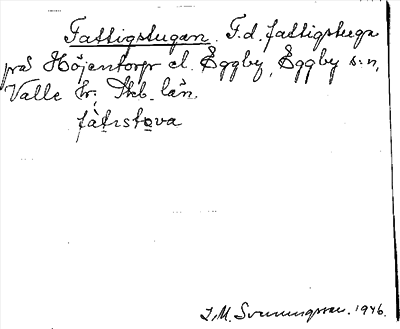 Fattigstugan. F.d. fattigstuga
på Höjentorps el. Eggby, Eggby s:n,
Valle hr; Skb. län.
fàtɩstova
J.M. Svenningsson. 1946.